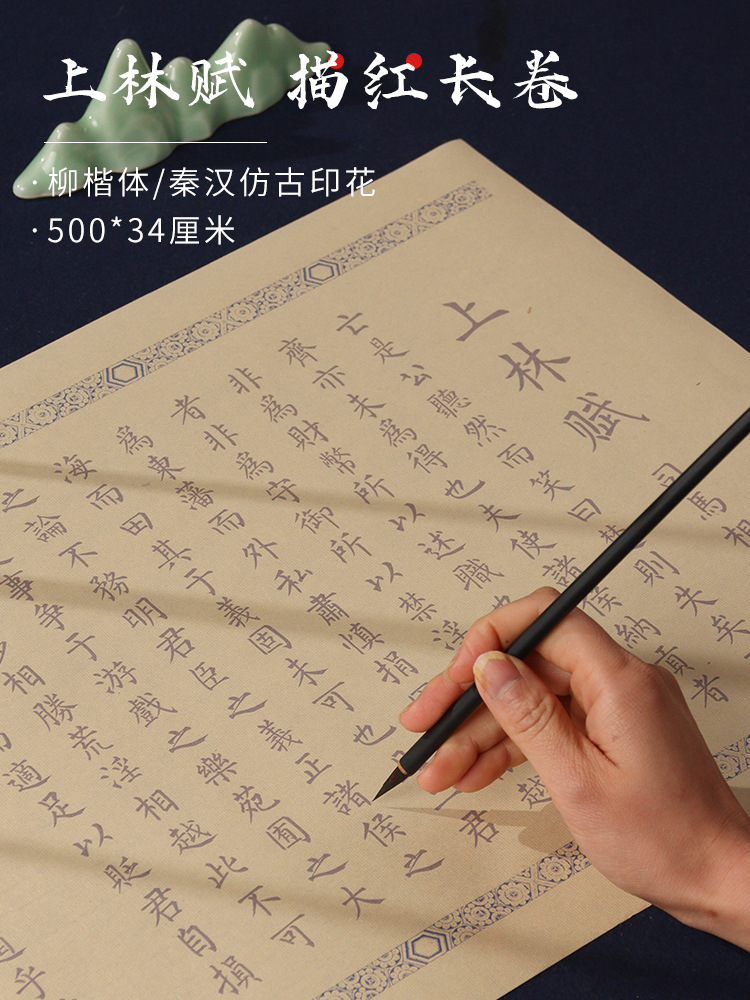 上林赋 描红长卷
·柳楷体/秦汉仿古印花
·500*34厘米
上林赋
司馬相
亡是公聽然而笑曰楚則失矣
齊亦未為得也夫使諸侯納貢者
非為財幣所以述職也
者非為守御所以禁淫也
為東藩而外私肅慎捐國越
海而田其于義固未可也二君
之論不務明君臣之義正諸侯之
事争于游戲之樂苑囿之大
相勝荒淫相越此不可
適足以貶君自損
乎